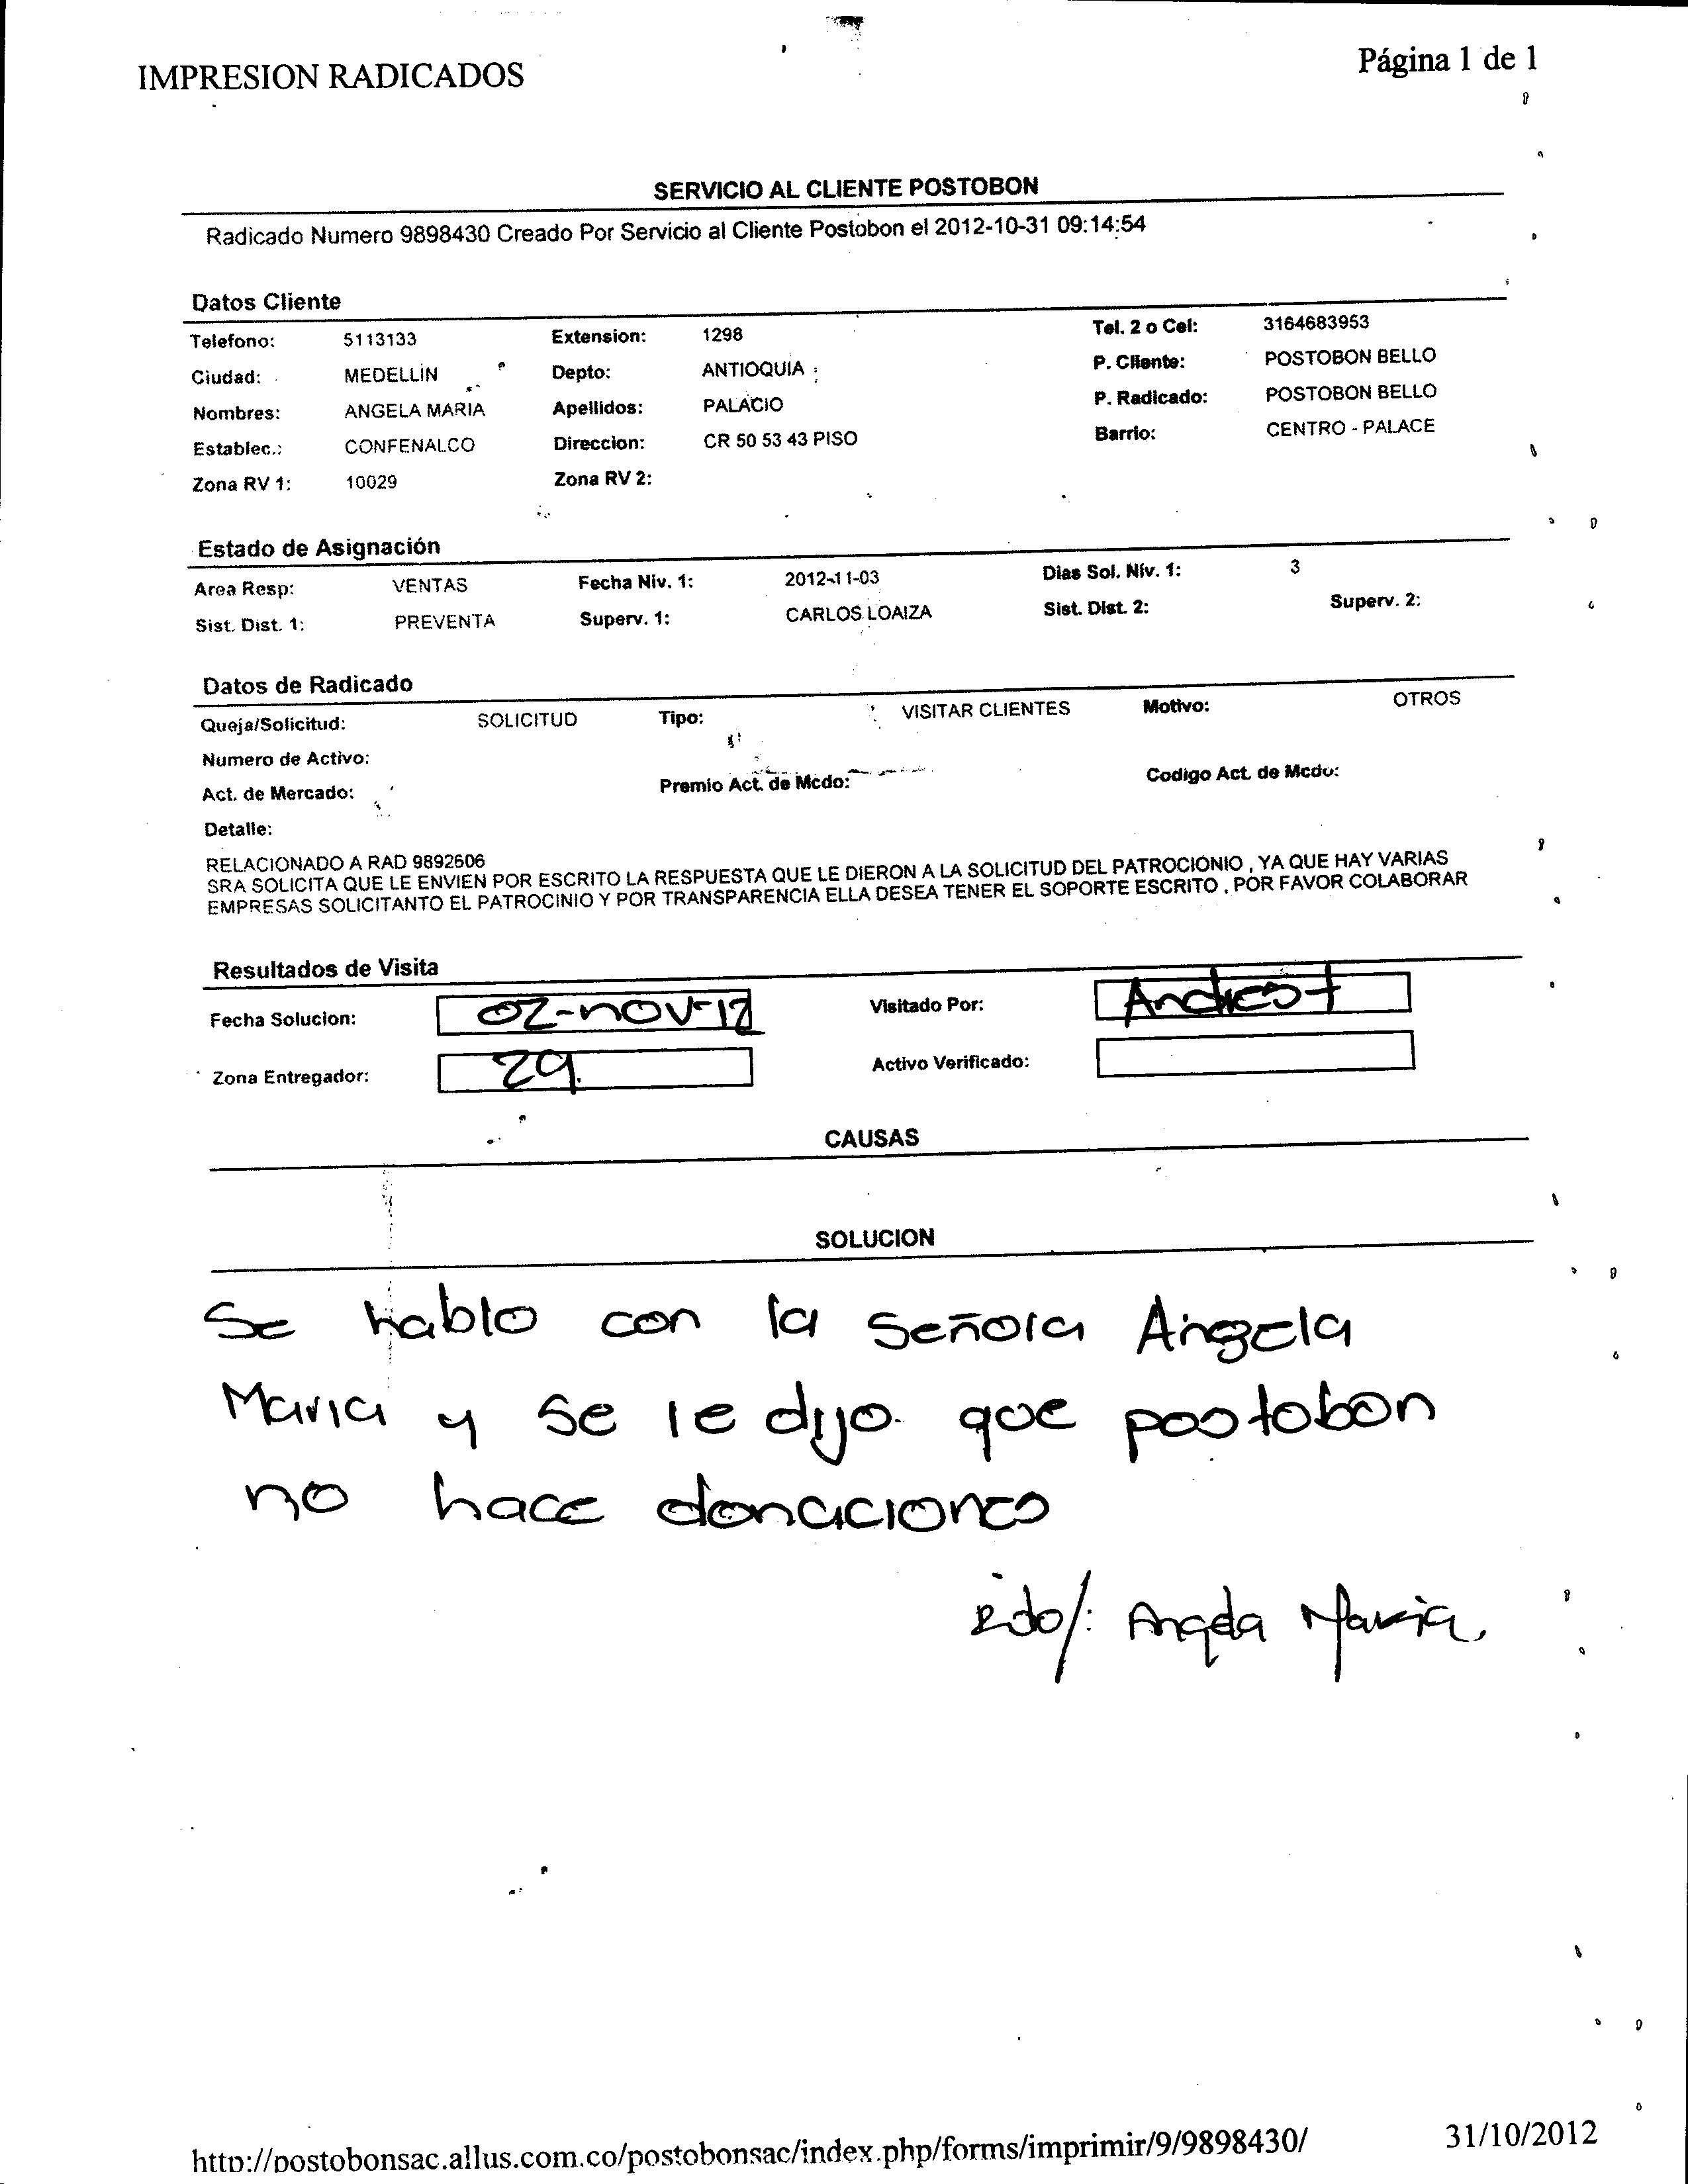 IMPRESION RADICADOS Página 1 de 1
SERVICIO AL CLIENTE POSTOBON
Radicado Numero 9898430 Creado Por Servicio al Cliente Postobon el 2012-10-31 09:14:54
Datos Cliente
Telefono: 5113133 Extension: 1298 Tel. 2 o Cel: 3164683953
Ciudad: MEDELLIN Depto: ANTIOQUIA P. Cliente: POSTOBON BELLO
Nombres: ANGELA MARIA Apellidos: PALACIO P. Radicado: POSTOBON BELLO
Establec.: CONFENALCO Direccion: CR 50 53 43 PISO Barrio: CENTRO - PALACE
Zona RV 1: 10029 Zona RV 2:
Estado de Asignación
Area Resp: VENTAS Fecha Niv. 1: 2012-11-03 Dias Sol. Niv. 1: 3
Sist. Dist. 1: PREVENTA Superv. 1: CARLOS LOAIZA Sist. Dist. 2: Superv. 2:
Datos de Radicado
Queja/Solicitud: SOLICITUD Tipo: VISITAR CLIENTES Motivo: OTROS
Numero de Activo:
Act. de Mercado: Premio Act. de Mcdo: Codigo Act. de Mcdo:
Detalle:
RELACIONADO A RAD 9892606
SRA SOLICITA QUE LE ENVIEN POR ESCRITO LA RESPUESTA QUE LE DIERON A LA SOLICITUD DEL PATROCIONIO , YA QUE HAY VARIAS
EMPRESAS SOLICITANTO EL PATROCINIO Y POR TRANSPARENCIA ELLA DESEA TENER EL SOPORTE ESCRITO , POR FAVOR COLABORAR
Resultados de Visita
Fecha Solucion: 02-nov-12 Visitado Por:
Zona Entregador: 29. Activo Verificado:
CAUSAS
SOLUCION
Se hablo con la Señora Angela
Maria y se le dijo que postobon
no hace donaciones
Rdo/: Angela Maria.
http://postobonsac.allus.com.co/postobonsac/index.php/forms/imprimir/9/9898430/ 31/10/2012